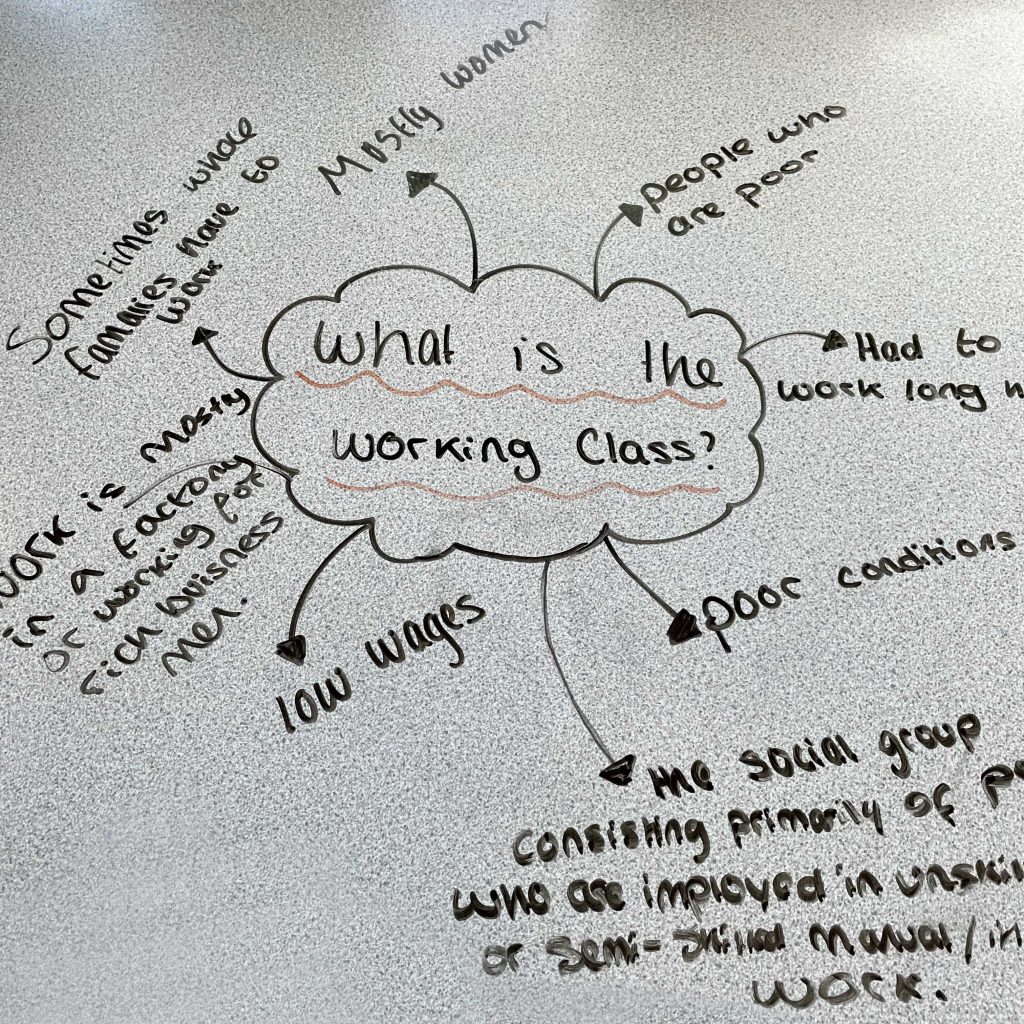 What is the
working class?
Mostly women
people who
are poor
Had to
work long
poor conditions
the social group
consisting primarily of
who are imployed in
or semi-skilled manual/
work.
low wages
work is mostly
in a factory
or working for
rich buisness
men.
Sometimes whole
famalies have to
work